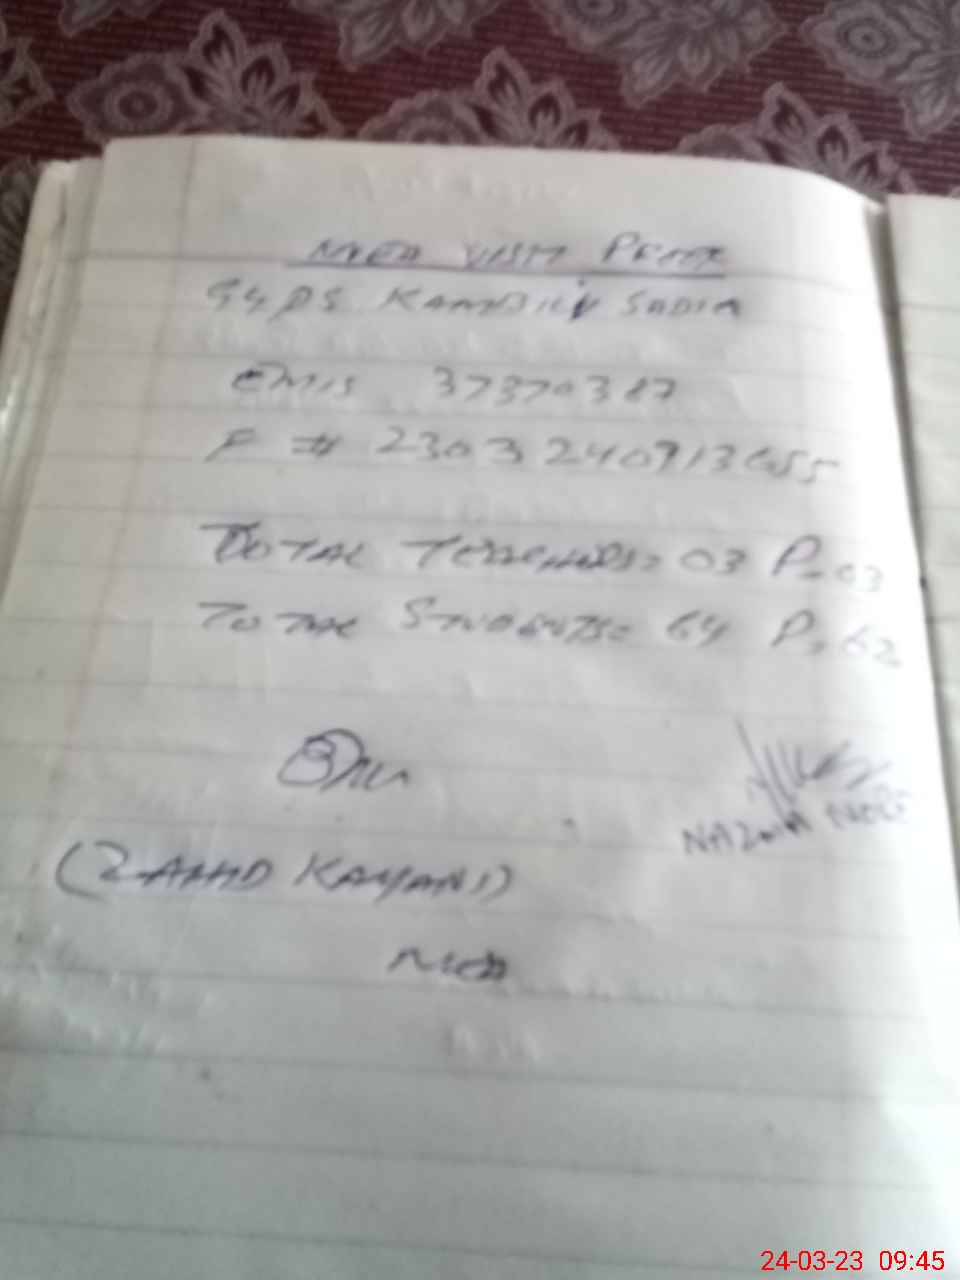 MEA VISIT PROOF
GGPS KAMBILY SADIA
EMIS 37370327
F # 2303240913655
TOTAL TEACHERS= 03 P=03
TOTAL STUDENTS= 64 P=62
NAZMA
(ZAHID KAYANI)
MEA
24-03-23 09:45